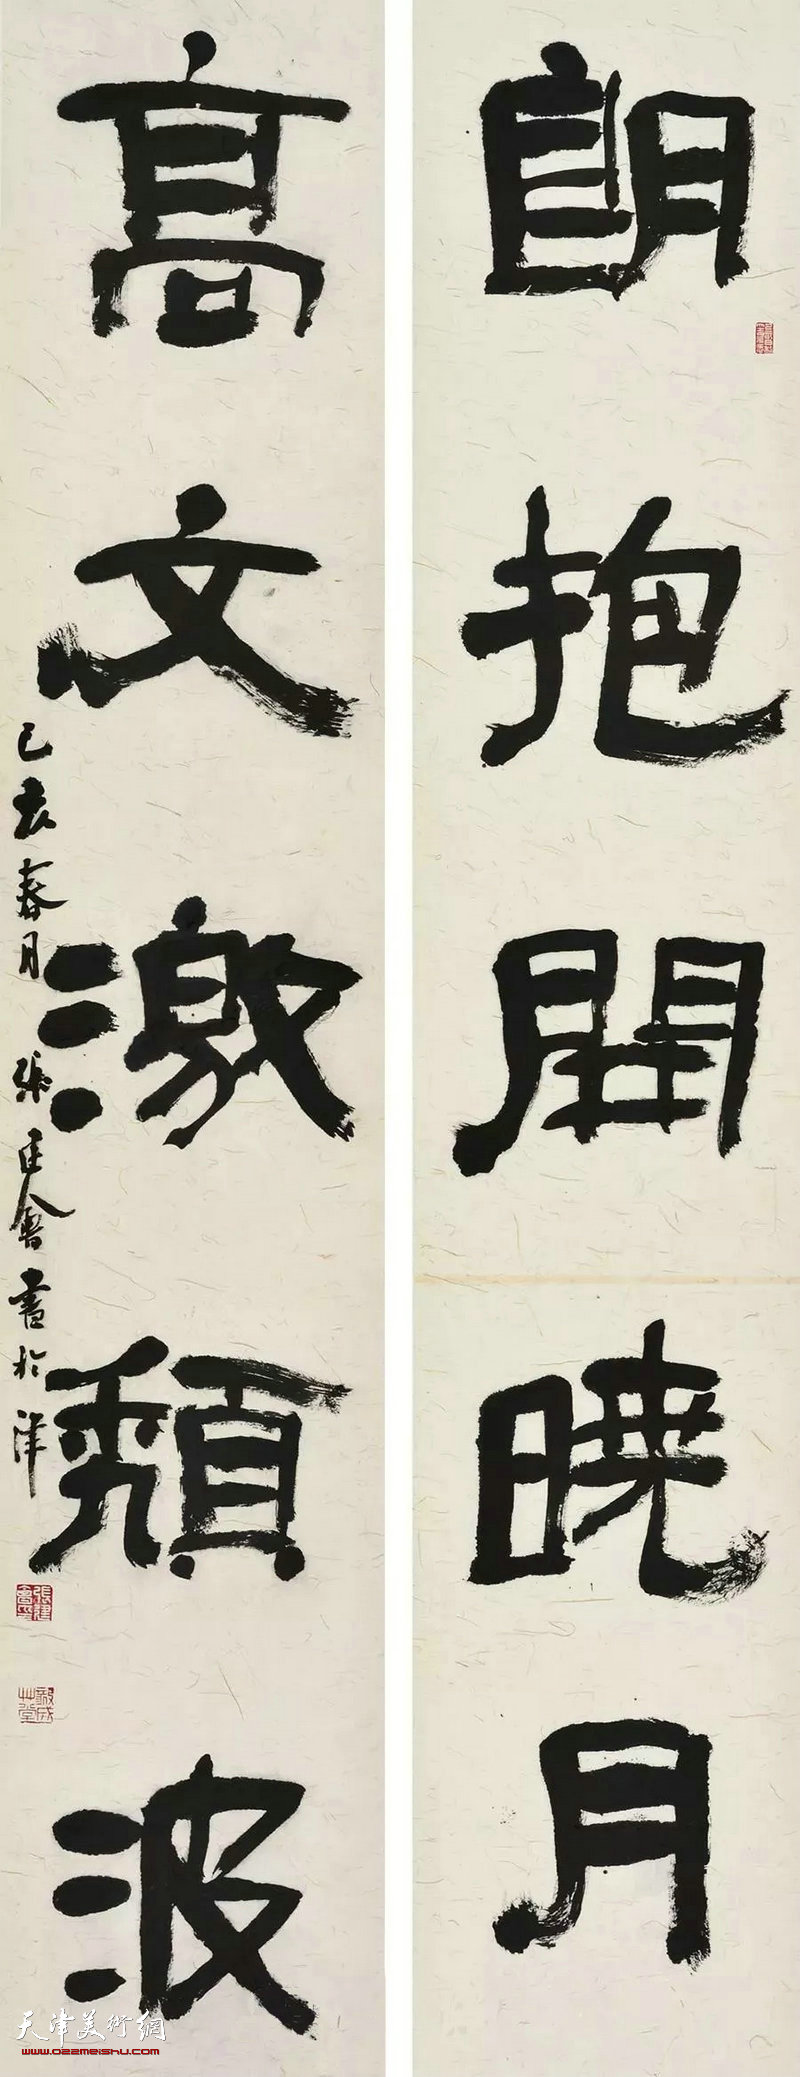 朗抱開曉月
高文激頹波
己亥春月 張建會書於津
張建會印
毅成草堂
天津美術網
www.022meishu.com